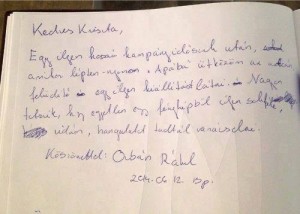 Kedves Kriszta,
Egy ilyen hosszú kampányidőszak után,
amikor lépten-nyomon, "Apába" ütközöm az
felüdítő egy ilyen kiállítást látni. Nagyon
tetszik, hogy egyetlen egy fényképből ilyen
üdén, hangulatot tudtál varázsolni.
Köszönettel: Orbán Ráhel
2014.06.12. Bp.